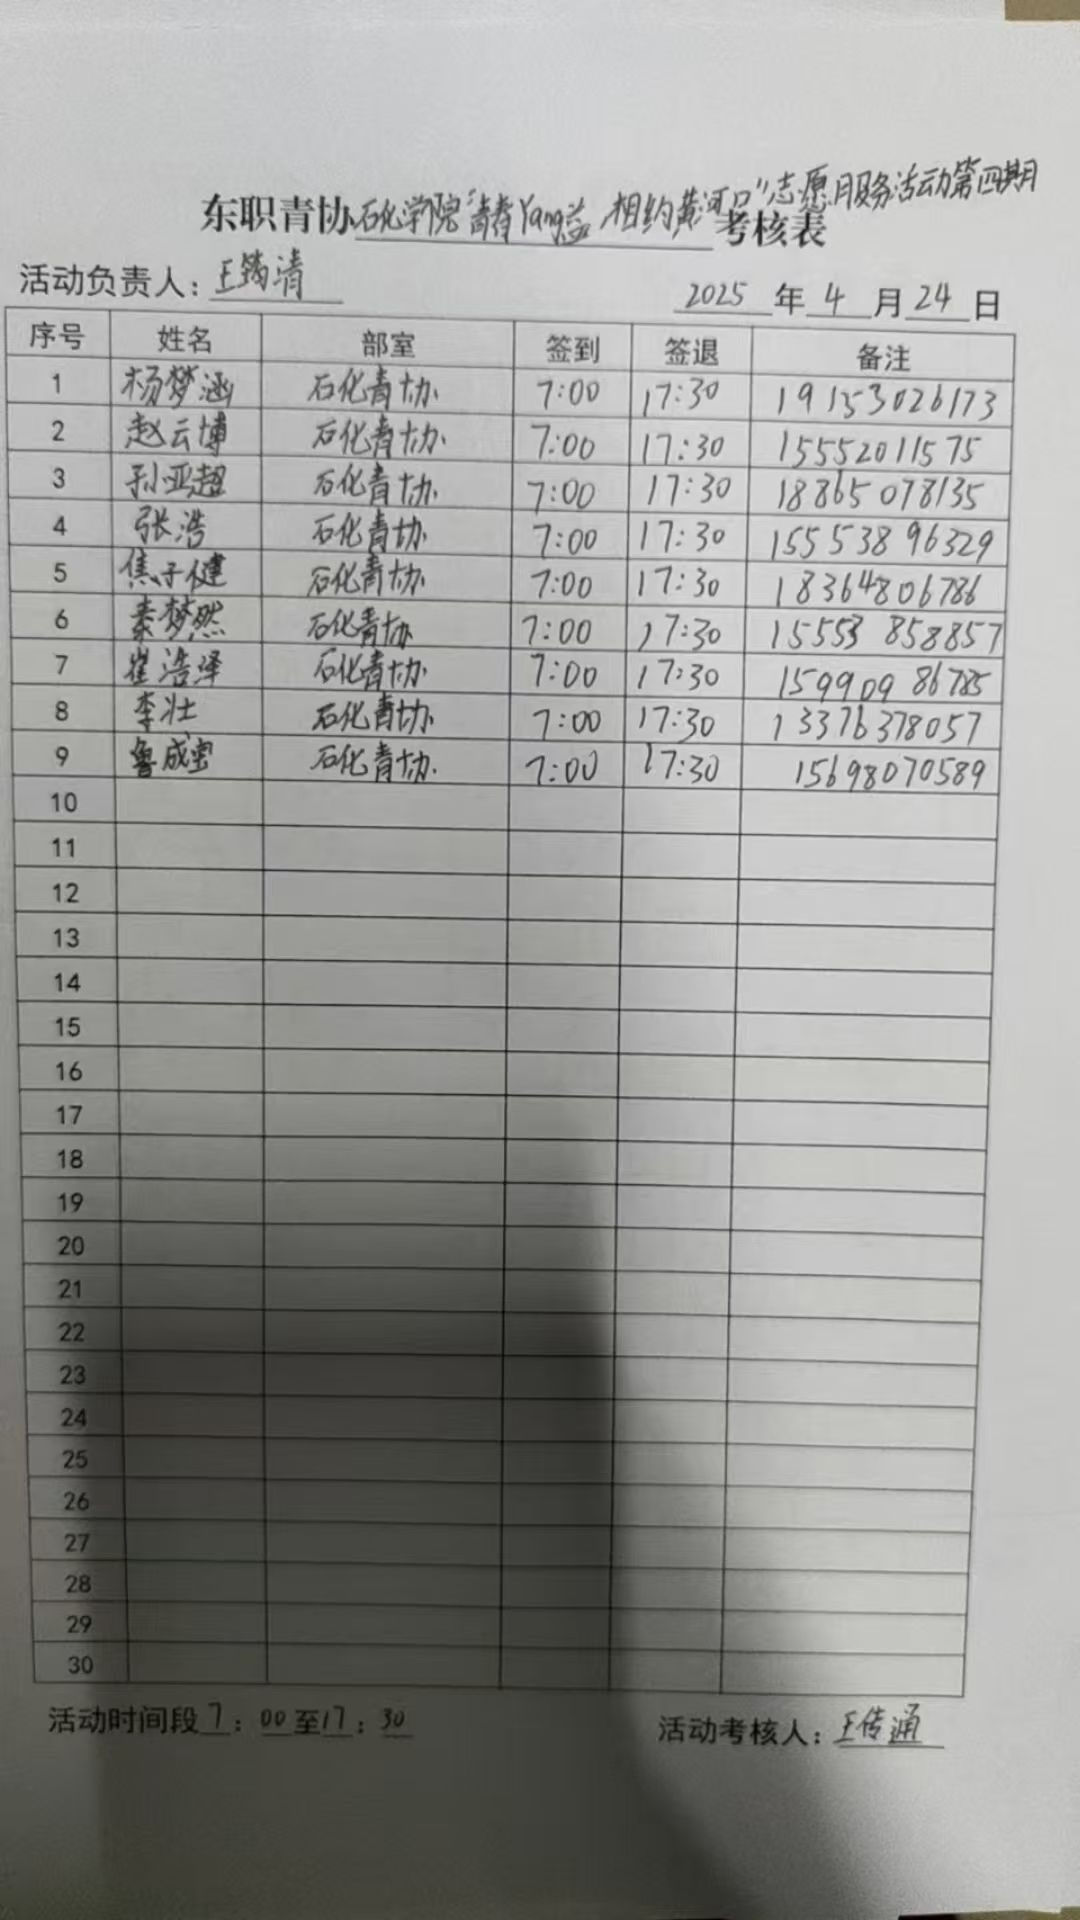 东职青协石化学院“青春Yang益 相约黄河口”志愿服务活动第四期考核表
活动负责人：王筠清 2025年4月24日
序号 姓名 部室 签到 签退 备注
1 杨梦涵 石化青协 7:00 17:30 19153026173
2 赵云博 石化青协 7:00 17:30 15552011575
3 孙亚超 石化青协 7:00 17:30 18865078135
4 张浩 石化青协 7:00 17:30 15553896329
5 焦子健 石化青协 7:00 17:30 18364806786
6 秦梦然 石化青协 7:00 17:30 15553858857
7 崔浩泽 石化青协 7:00 17:30 15990986785
8 李壮 石化青协 7:00 17:30 13376378057
9 鲁成宝 石化青协 7:00 17:30 15698070589
10
11
12
13
14
15
16
17
18
19
20
21
22
23
24
25
26
27
28
29
30
活动时间段7：00至17：30 活动考核人：王传通